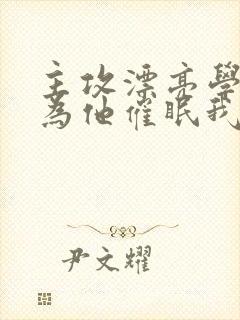 主攻漂亮學
為他催眠我
尹文耀